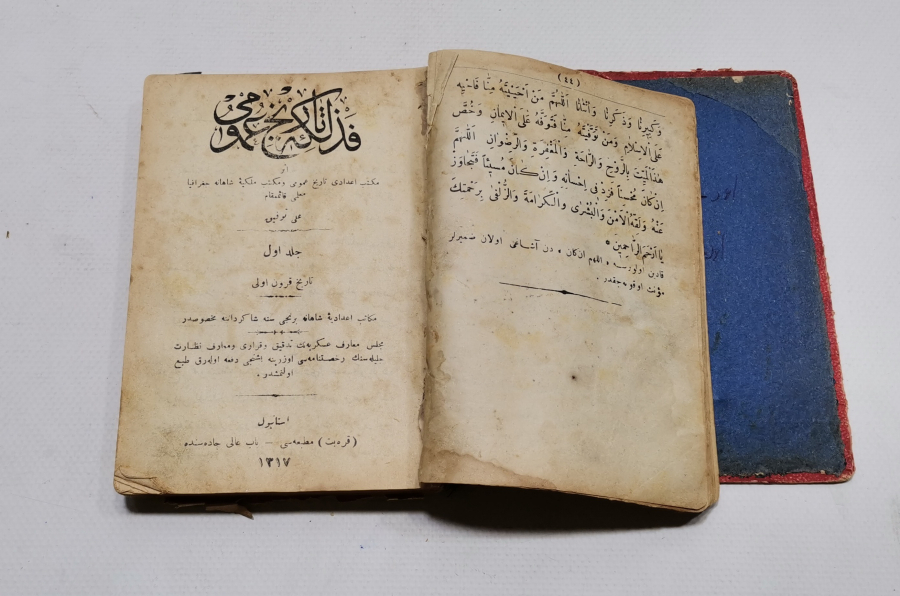 فذلكهٔ تاریخ عمومی
اثر
مكتب اعدادی تاریخ عمومی و مكتب ملكیهٔ شاهانه جغرافیا
معلمی قائممقام
علی توفیق
جلد اول
تاریخ قرون اولی
مكاتب اعدادیهٔ شاهانه برنجی سنه شاكرداننه مخصوصدر
مجلس معارف عسكریه‌نك تدقیق و قراری و معارف نظارت
جلیله‌سنك رخصتنامه‌سی اوزرینه بشنجی دفعه اوله‌رق طبع
اولنمشدر .
استانبول
( قره‌بت ) مطبعه‌سی — باب عالی جاده‌سنده
١٣١٧
(٤٤)
وَكَبِيرِنَا وَذَكَرِنَا وَاُنْثَانَا اَللّٰهُمَّ مَنْ اَحْيَيْتَهُ مِنَّا فَاَحْيِهِ
عَلَى الْاِسْلَامِ وَمَنْ تَوَفَّيْتَهُ مِنَّا فَتَوَفَّهُ عَلَى الْاِيمَانِ وَخُصَّ
هٰذَا الْمَيِّتَ بِالرَّوْحِ وَالرَّاحَةِ وَالْمَغْفِرَةِ وَالرِّضْوَانِ اَللّٰهُمَّ
اِنْ كَانَ مُحْسِناً فَزِدْ فِى اِحْسَانِهِ وَاِنْ كَانَ مُسِيئاً فَتَجَاوَزْ
عَنْهُ وَلَقِّهِ الْاَمْنَ وَالْبُشْرٰى وَالْكَرَامَةَ وَالزُّلْفٰى بِرَحْمَتِكَ
يَا اَرْحَمَ الرَّاحِمِينَ
قادین اولورسه « اللهم ان كان » دن آشاغی اولان ضمیرلر
مؤنث اوقونه‌جقدر .